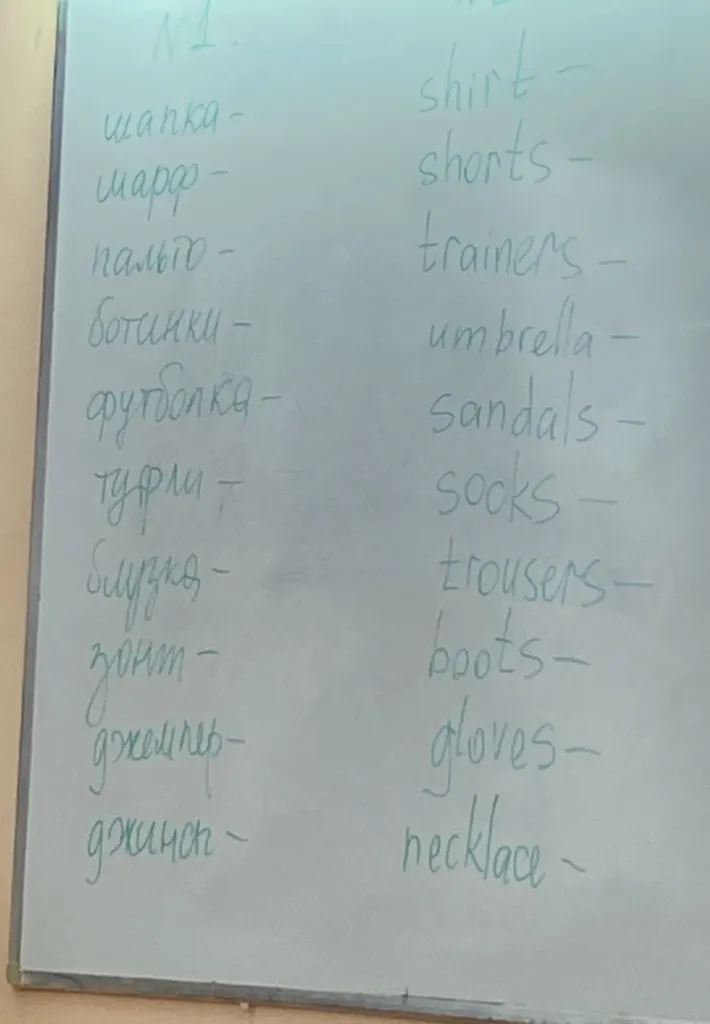 №1.
шапка -
шарф -
пальто -
ботинки -
футболка -
туфли -
блузка -
зонт -
джемпер -
джинсы -
shirt -
shorts -
trainers -
umbrella -
sandals -
socks -
trousers -
boots -
gloves -
necklace -